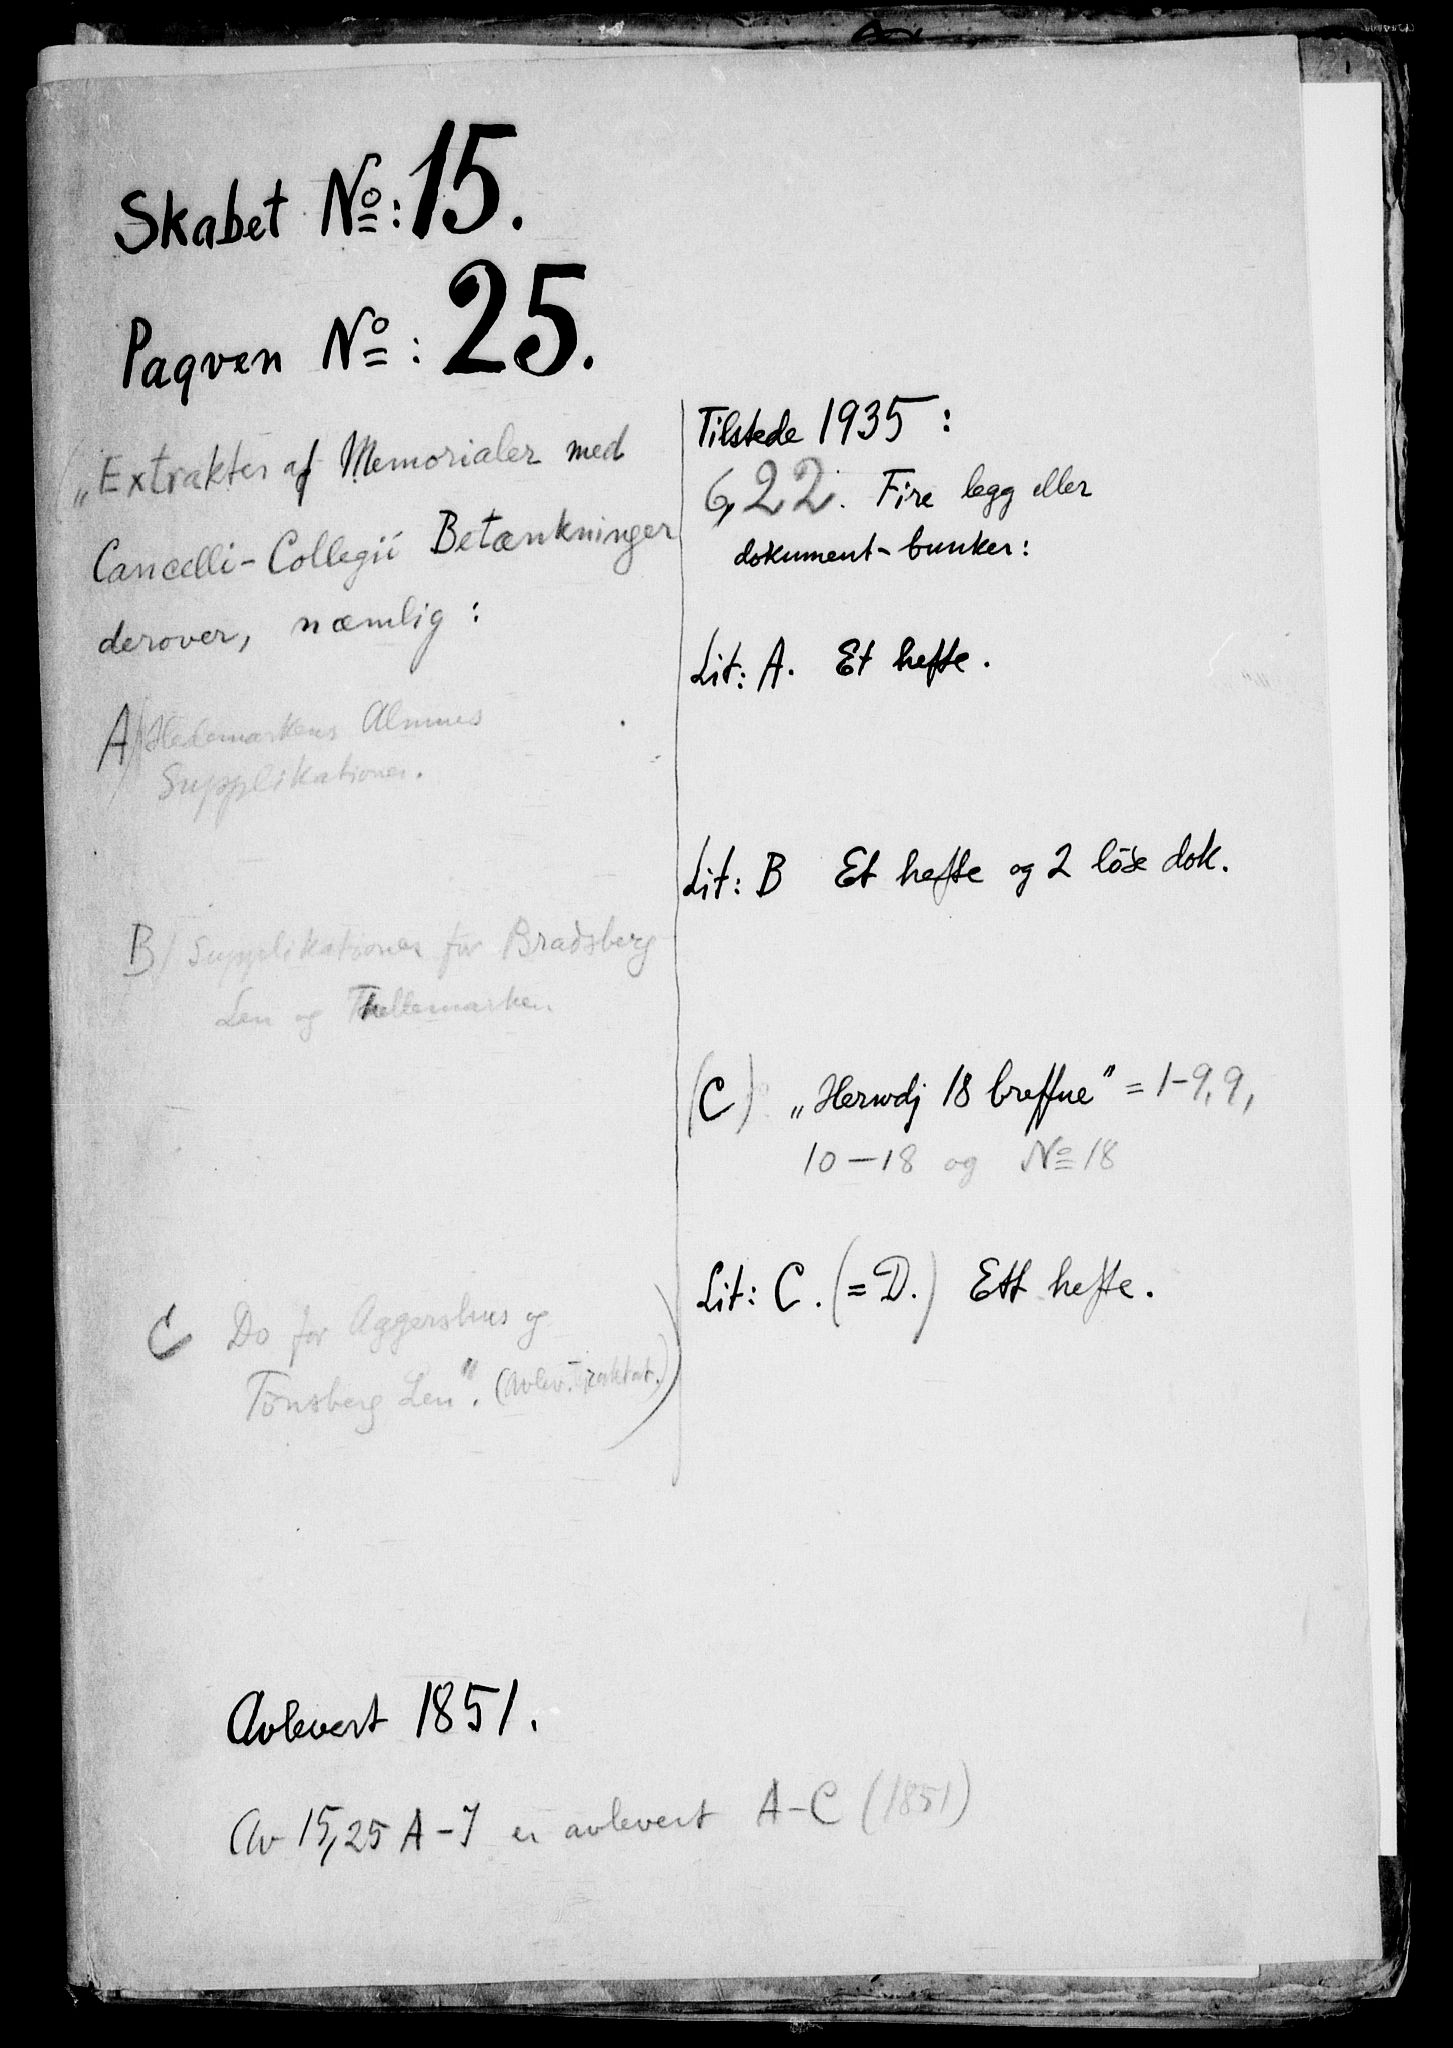 Skabet No: 15.
Paqven No: 25.
„Extrakter af Memorialer med
Cancelli-Collegii Betænkninger
derover, næmlig:
A/ Hedemarkens Almues
Supplikationer.
B/ Supplikationer for Bradsberg
Len og Thellemarken
C Do for Aggershus og
Tønsberg Len". (Avlev. Traktat.)
Tilstede 1935:
6,22. Fire legg eller
dokument-bunker:
Lit: A. Et hefte.
Lit: B Et hefte og 2 löse dok.
(C) „Herudj 18 breffue" = 1-9, 9,
10-18 og No 18
Lit: C. (= D.) Ett hefte.
Avlevert 1851.
Av 15,25 A-J er avlevert A-C (1851)